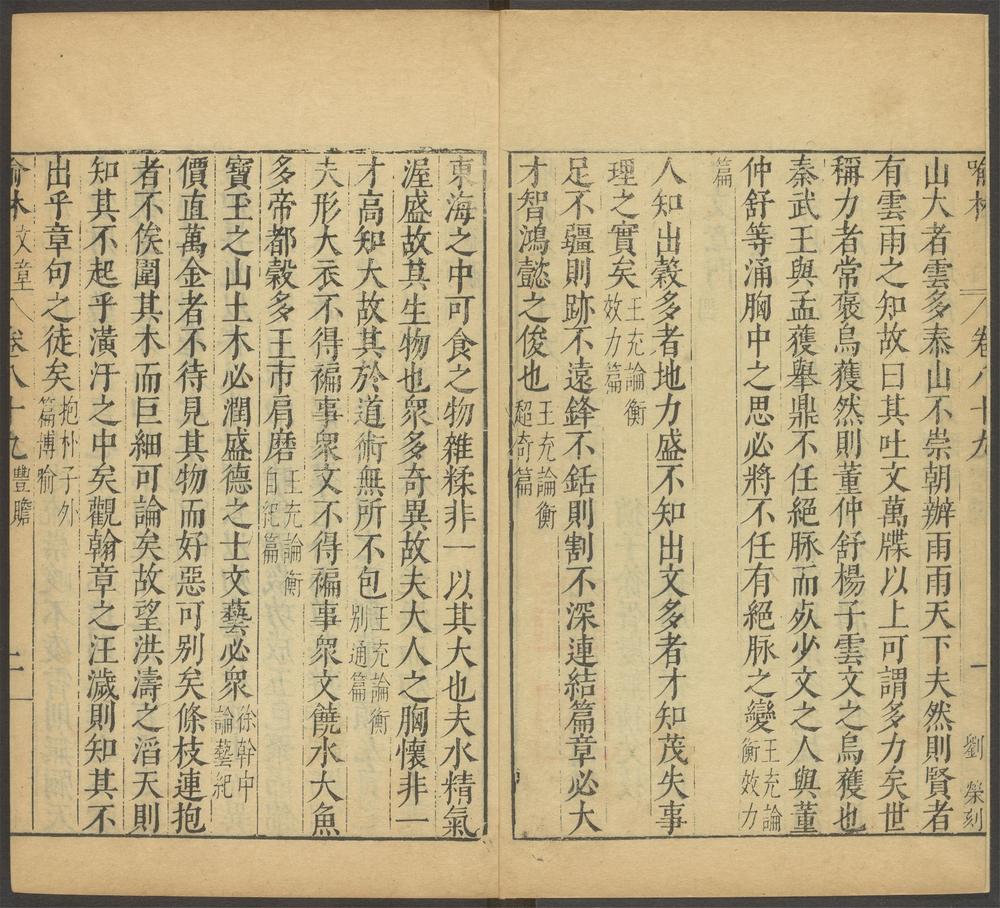 喻林 卷八十九 一 劉榮刻
山大者雲多泰山不崇朝辦雨雨天下夫然則賢者
有雲雨之知故曰其吐文萬牒以上可謂多力矣世
稱力者常褒烏獲然則董仲舒楊子雲文之烏獲也
秦武王與孟獲舉鼎不任絕脉而死少文之人與董
仲舒等涌胸中之思必將不任有絕脉之變王充論衡效力
篇
人知出穀多者地力盛不知出文多者才知茂失事
理之實矣王充論衡效力篇
足不彊則跡不遠鋒不銛則割不深連結篇章必大
才智鴻懿之俊也王充論衡超奇篇
東海之中可食之物雜糅非一以其大也夫水精氣
渥盛故其生物也衆多奇異故夫大人之胸懷非一
才高知大故其於道術無所不包王充論衡別通篇
夫形大衣不得褊事衆文不得褊事衆文饒水大魚
多帝都穀多王市肩磨王充論衡自紀篇
寶玉之山土木必潤盛德之士文藝必衆徐幹中論藝紀
價直萬金者不待見其物而好惡可別矣條枝連抱
者不俟圍其木而巨細可論矣故望洪濤之滔天則
知其不起乎潢汙之中矣觀翰章之汪濊則知其不
出乎章句之徒矣抱朴子外篇博喻
喻林文章 卷八十九 豐贍 二